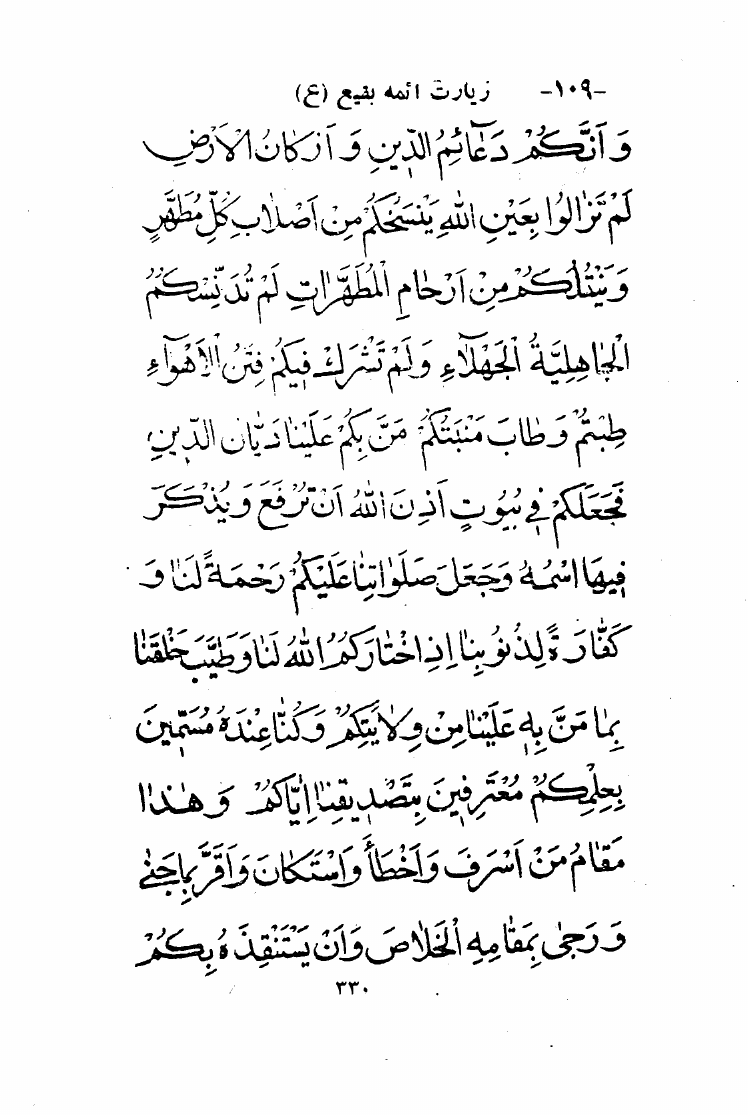 -۱۰۹- زیارت ائمه بقیع (ع)
وَ اَنَّكُمْ دَعٰٓائِمُ الدّينِ وَ اَرْكٰانُ الْاَرْضِ
لَمْ تَزٰالُوا بِعَيْنِ اللّٰهِ يَنْسَخُكُمْ مِنْ اَصْلٰابِ كُلِّ مُطَهَّرٍ
وَ يَنْقُلُكُمْ مِنْ اَرْحٰامِ الْمُطَهَّرٰاتِ لَمْ تُدَنِّسْكُمُ
الْجٰاهِلِيَّةُ الْجَهْلٰاءِ وَ لَمْ تَشْرَكْ فيكُمْ فِتَنُ الْاَهْوٰٓاءِ
طِبْتُمْ وَ طٰابَ مَنْبَتُكُمْ مَنَّ بِكُمْ عَلَيْنٰا دَيّٰانُ الدّينِ
فَجَعَلَكُمْ في بُيُوتٍ اَذِنَ اللّٰهُ اَنْ تُرْفَعَ وَ يُذْكَرَ
فيهَا اسْمُهُ وَ جَعَلَ صَلَوٰاتِنٰا عَلَيْكُمْ رَحْمَةً لَنٰا وَ
كَفّٰارَةً لِذُنُوبِنٰا اِذِ اخْتٰارَكُمُ اللّٰهُ لَنٰا وَ طَيَّبَ خَلْقَنٰا
بِمٰا مَنَّ بِهِ عَلَيْنٰا مِنْ وِلٰايَتِكُمْ وَ كُنّٰا عِنْدَهُ مُسَمّينَ
بِعِلْمِكُمْ مُعْتَرِفينَ بِتَصْديقِنٰا اِيّٰاكُمْ وَ هٰذٰا
مَقٰامُ مَنْ اَسْرَفَ وَ اَخْطَأَ وَ اسْتَكٰانَ وَ اَقَرَّ بِمٰا جَنٰى
وَ رَجٰى بِمَقٰامِهِ الْخَلٰاصَ وَ اَنْ يَسْتَنْقِذَهُ بِكُمْ
۳۳۰